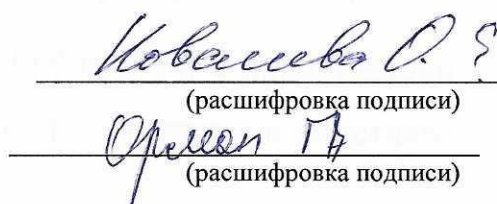 Ковалева О.
(расшифровка подписи)
Орман
(расшифровка подписи)